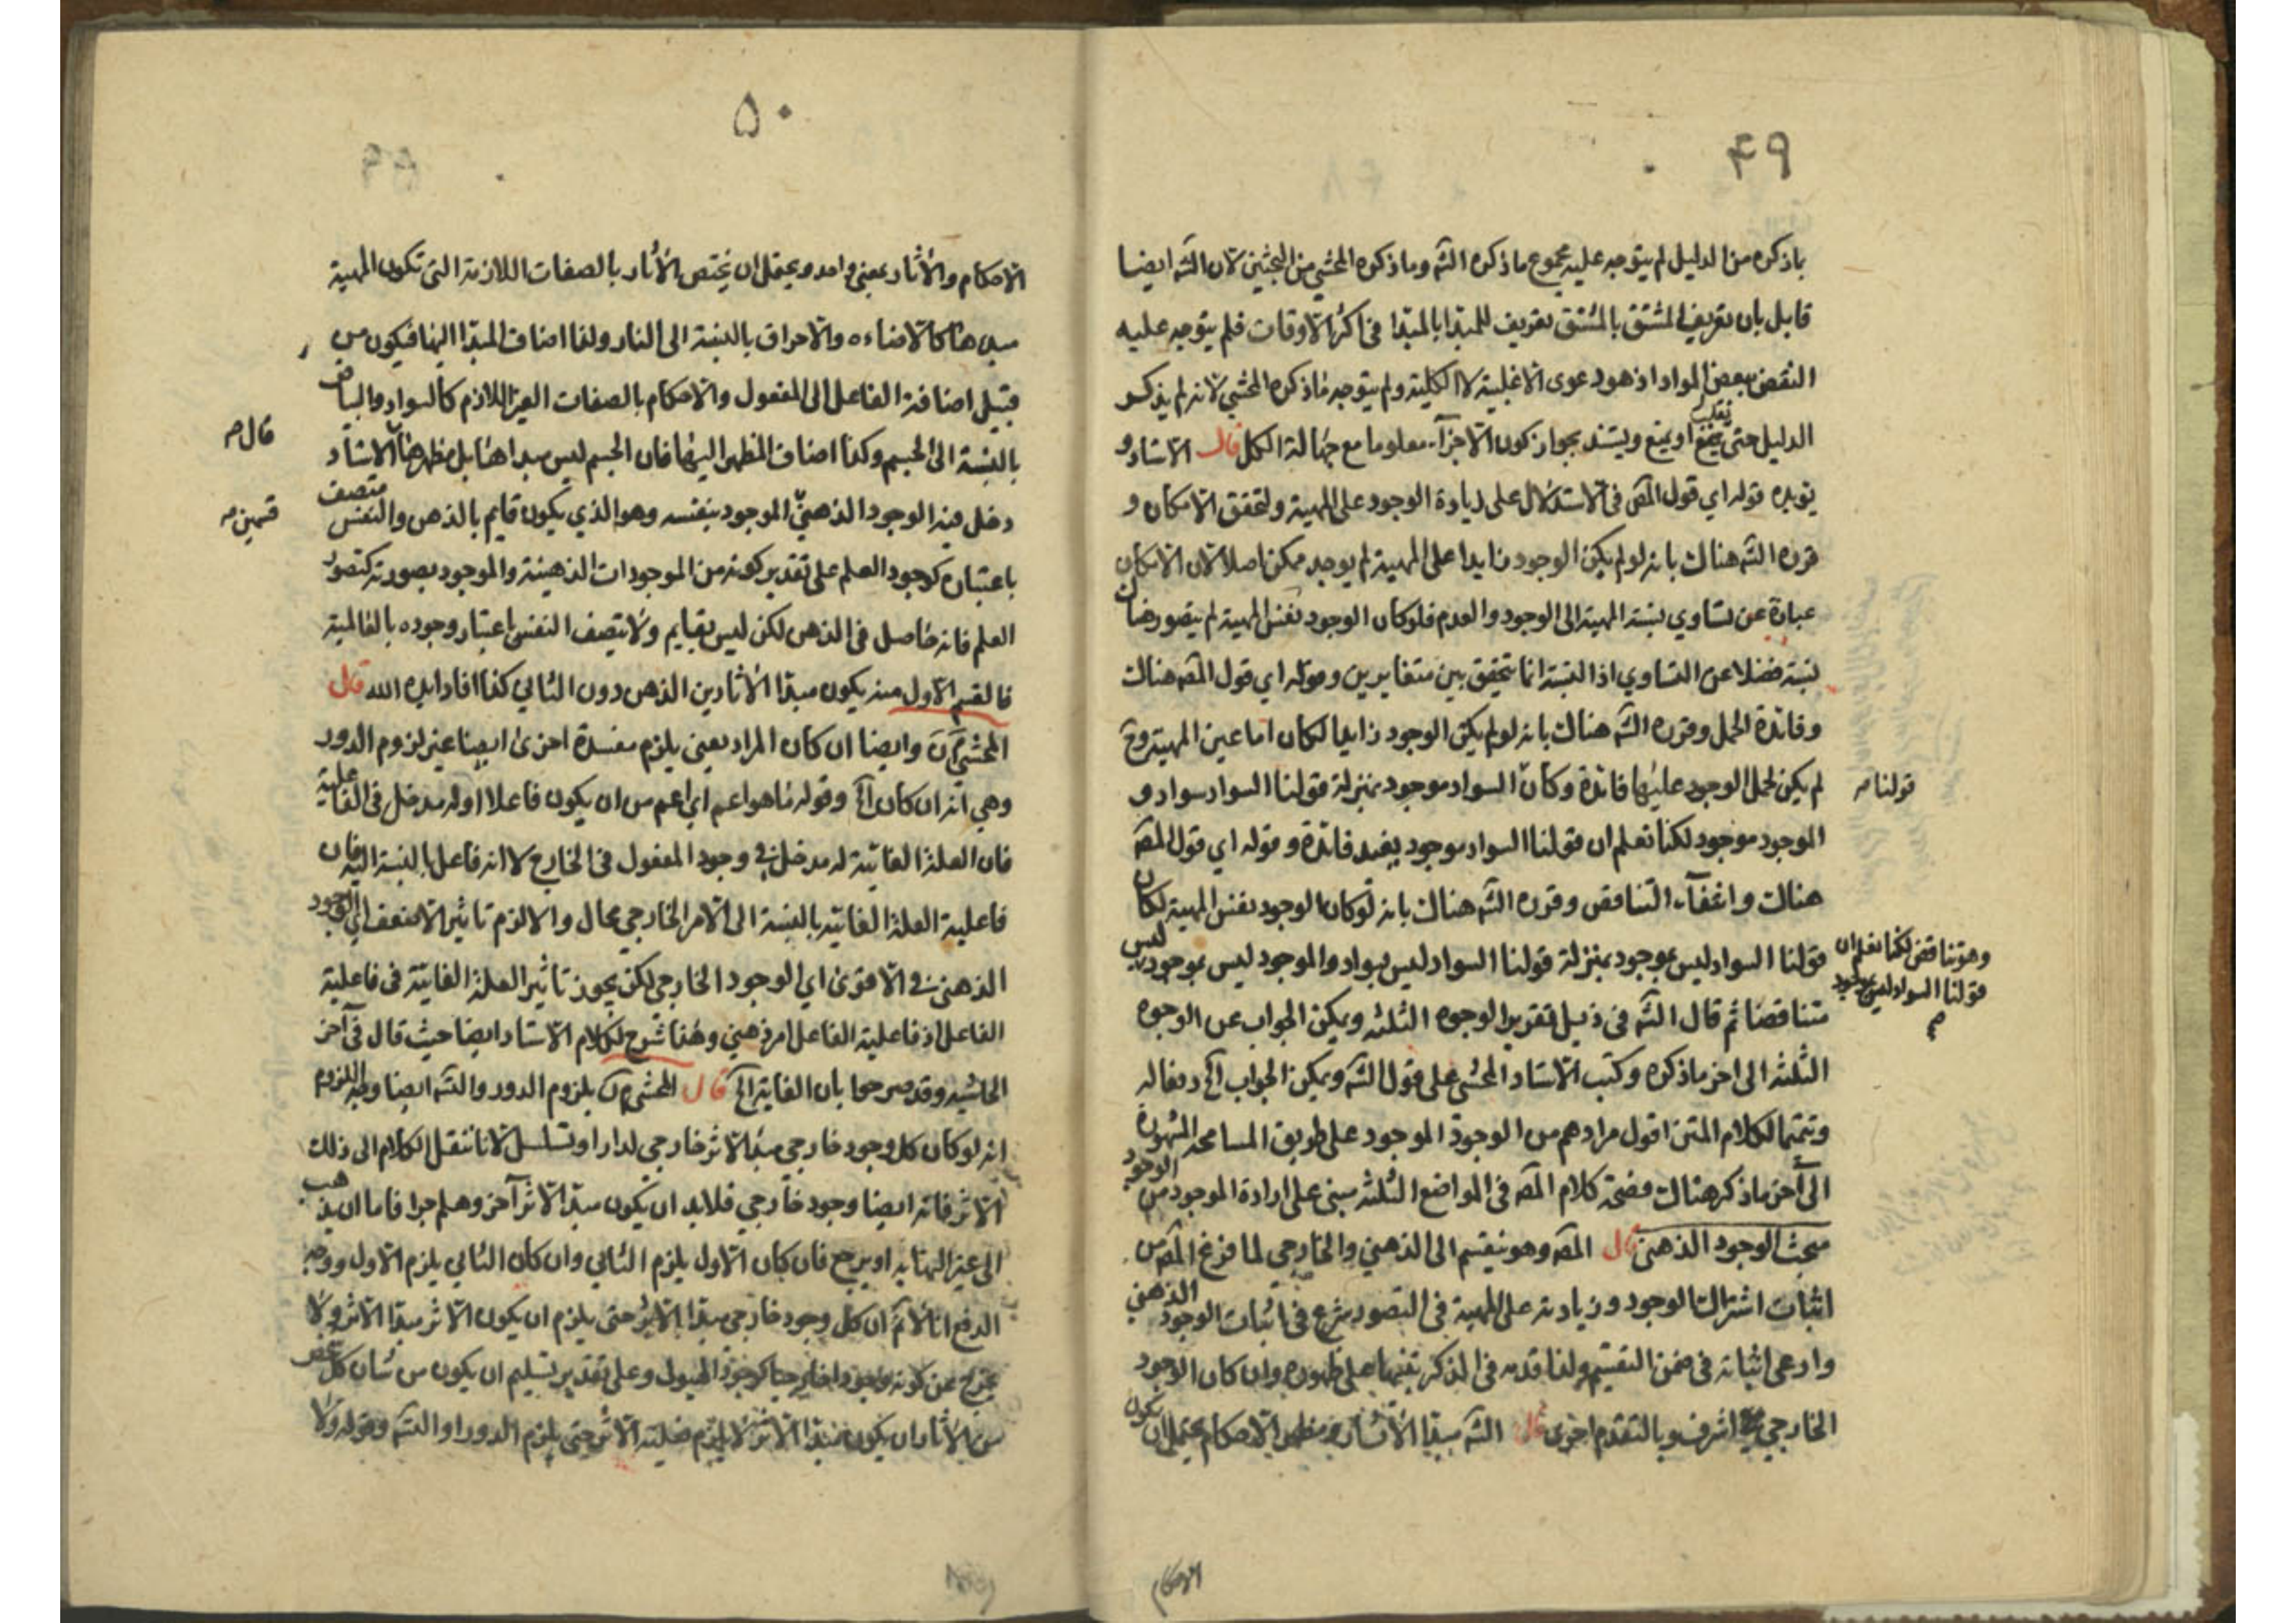 ۴۹
باذكره من الدليل لم يتوجه عليه مجموع ماذكره الشه وماذكره المحشي من البحثين لان الشه ايضا
قايل بان تعريف المشتق بالمشتق تعريف للمبدا بالمبدا فى اكثر الاوقات فلم يتوجه عليه
النقض ببعض المواد اذ هو دعوى الاغلبية لا الكلية ولم يتوجه ماذكره المحشي لانه لم يذكر
الدليل حتى او يمنع ويستند بجواز كون الاجزآء معلوما مع جهالة الكل قال الاستاد و
يؤيده قوله اى قول المصه فى الاستدلال على زيادة الوجود على المهية ولتحقق الامكان و
قرره الشه هناك بانه لو لم يكن الوجود زايدا على المهية لم يوجد ممكن اصلا لان الامكان
عبارة عن تساوي نسبة المهية الى الوجود والعدم فلو كان الوجود نفس المهية لم يتصور هناك
نسبة فضلا عن التساوي اذ النسبة انما تتحقق بين متغايرين وقوله اي قول المصه هناك
وفائدة الحمل وقرره الشه هناك بانه لو لم يكن الوجود زايدا لكان اما عين المهية وح
لم يكن لحمل الوجود عليها فائدة وكان السواد موجود بمنزلة قولنا السواد سواد و
قولنا صه
الموجود موجود لكنا نعلم ان قولنا السواد موجود يفيد فائدة وقوله اي قول المصه
هناك وانتفآء التناقض وقرره الشه هناك بانه لو كان الوجود نفس المهية لكان
قولنا السواد ليس بموجود بمنزلة قولنا السواد ليس بسواد والموجود ليس بموجود ليس
وهو تناقض لكنا نعلم ان
قولنا السواد ليس بموجود
متناقضا ثم قال الشه فى ذيل تقرير الوجوه الثلثه ويمكن الجواب عن الوجوه
الثلثه الى اخر ماذكره وكتب الاستاد المحشي على قول الشه ويمكن الجواب الخ دفعا له
وتتميما لكلام المتن اقول مرادهم من الوجود الموجود على طريق المسامحه المشهورة
الى آخر ماذكر هناك فصحة كلام المصه فى المواضع الثلثه مبنى على ارادة الموجود من الوجود
مبحث الوجود الذهنى قال المصه وهو ينقسم الى الذهني والخارجي لما فرغ المصه من
اثبات اشتراك الوجود وزيادته على المهية فى التصور شرع فى اثبات الوجود الذهني
وادعى اثباته فى ضمن التقسيم ولذا قدمه فى الذكر تنبيها على ظهوره وان كان الوجود
الخارجي اشرف وبالتقدم احرى قال الشه مبدا الآثار ومظهر الاحكام يحتمل ان يكون
الاحكام
۵۰
الاحكام والآثار بمعنى واحد ويحتمل ان يختص الآثار بالصفات اللازمة التى تكون المهية
مبدءها كالاضاءه والاحراق بالنسبة الى النار ولذا اضاف المبدا اليها فيكون من
قبيل اضافة الفاعل الى المفعول والاحكام بالصفات الغير اللازم كالسواد والبياض
بالنسبة الى الجسم وكذا اضاف المظهر اليها فان الجسم ليس مبداها بل مظهرها الاستاد
قال صه
دخل فيه الوجود الذهني الموجود بنفسه وهو الذي يكون قايم بالذهن والنفس متصف
قسمين صه
باعتباره كوجود العلم على تقدير كونه من الموجودات الذهنية والموجود بصورته كتصور
العلم فانه حاصل فى الذهن لكن ليس بقايم ولا يتصف النفس باعتبار وجوده بالعالمية
فالقسم الاول منه يكون مبدا الآثار بين الذهن دون الثاني كذا افاد ايده الله قال
المحشي وايضا ان كان المراد يعني يلزم مفسدة اخرى ايضا غير لزوم الدور
وهي انه ان كان الخ وقوله ما هو اعم اي اعم من ان يكون فاعلا او له مدخل فى الفاعلية
فان العلة الغائية له مدخل فى وجود المعلول فى الخارج لا انه فاعل بالنسبة اليه فان
فاعلية العلة الغائيه بالنسبة الى الامر الخارجي محال والا لزم تاثير الاضعف اي الوجود
الذهنى فى الاقوى اي الوجود الخارجي لكن يجوز تاثير العلة الغائية فى فاعلية
الفاعل اذ فاعلية الفاعل امر ذهني وهذا شرح لكلام الاستاد ايضا حيث قال فى آخر
الحاشيه وقد صرحوا بان الغاية الخ قال المحشي يلزم الدور والشه ايضا وجه اللزوم
انه لو كان كل وجود خارجي مبدا لاثر خارجي لدار او تسلسل لانا ننقل الكلام الى ذلك
الاثر فانه ايضا وجود خارجي فلابد ان يكون مبدا لاثر آخر وهلم جرا فاما ان يذهب
الى غير النهايه او يرجع فان كان الاول يلزم الثاني وان كان الثاني يلزم الاول ووجه
الدفع انا لانم ان كل وجود خارجي مبدا الاثر حتى يلزم ان يكون الاثر مبدا الاثر ولا
يخرج عن كونه وجودا خارجيا كوجود الهيولى وعلى تقدير تسليم ان يكون من شان كل شخص
من الآثار ان يكون مبدا الاثر لا يلزم فعلية الاثر حتى يلزم الدور او التسه وقوله ولا